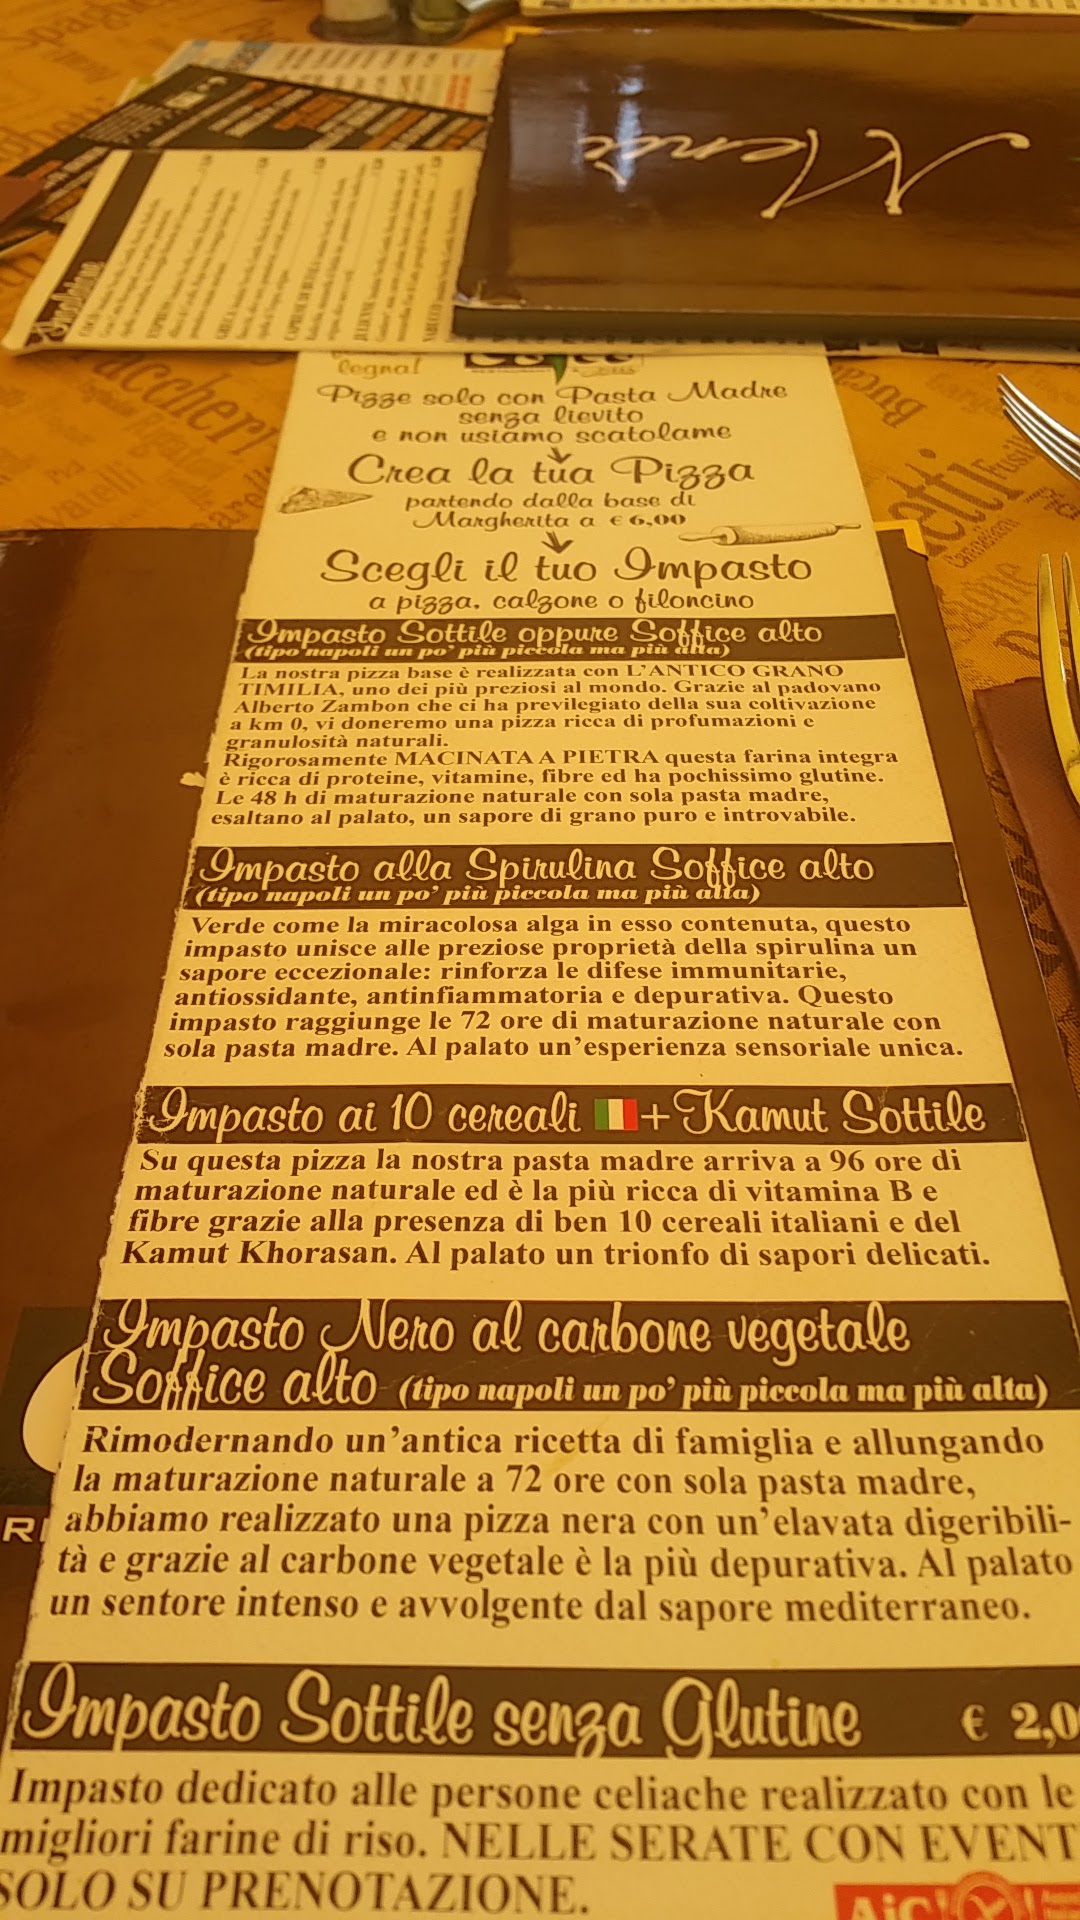 Menù
legna!
Pizze solo con Pasta Madre
senza lievito
e non usiamo scatolame
Crea la tua Pizza
partendo dalla base di
Margherita a € 6,00
Scegli il tuo Impasto
a pizza, calzone o filoncino
Impasto Sottile oppure Soffice alto
(tipo napoli un po' più piccola ma più alta)
La nostra pizza base è realizzata con L'ANTICO GRANO
TIMILIA, uno dei più preziosi al mondo. Grazie al padovano
Alberto Zambon che ci ha previlegiato della sua coltivazione
a km 0, vi doneremo una pizza ricca di profumazioni e
granulosità naturali.
Rigorosamente MACINATA A PIETRA questa farina integra
è ricca di proteine, vitamine, fibre ed ha pochissimo glutine.
Le 48 h di maturazione naturale con sola pasta madre,
esaltano al palato, un sapore di grano puro e introvabile.
Impasto alla Spirulina Soffice alto
(tipo napoli un po' più piccola ma più alta)
Verde come la miracolosa alga in esso contenuta, questo
impasto unisce alle preziose proprietà della spirulina un
sapore eccezionale: rinforza le difese immunitarie,
antiossidante, antinfiammatoria e depurativa. Questo
impasto raggiunge le 72 ore di maturazione naturale con
sola pasta madre. Al palato un'esperienza sensoriale unica.
Impasto ai 10 cereali + Kamut Sottile
Su questa pizza la nostra pasta madre arriva a 96 ore di
maturazione naturale ed è la più ricca di vitamina B e
fibre grazie alla presenza di ben 10 cereali italiani e del
Kamut Khorasan. Al palato un trionfo di sapori delicati.
Impasto Nero al carbone vegetale
Soffice alto (tipo napoli un po' più piccola ma più alta)
Rimodernando un'antica ricetta di famiglia e allungando
la maturazione naturale a 72 ore con sola pasta madre,
abbiamo realizzato una pizza nera con un'elavata digeribili-
tà e grazie al carbone vegetale è la più depurativa. Al palato
un sentore intenso e avvolgente dal sapore mediterraneo.
Impasto Sottile senza Glutine € 2,0
Impasto dedicato alle persone celiache realizzato con le
migliori farine di riso. NELLE SERATE CON EVENT
SOLO SU PRENOTAZIONE.
AiC